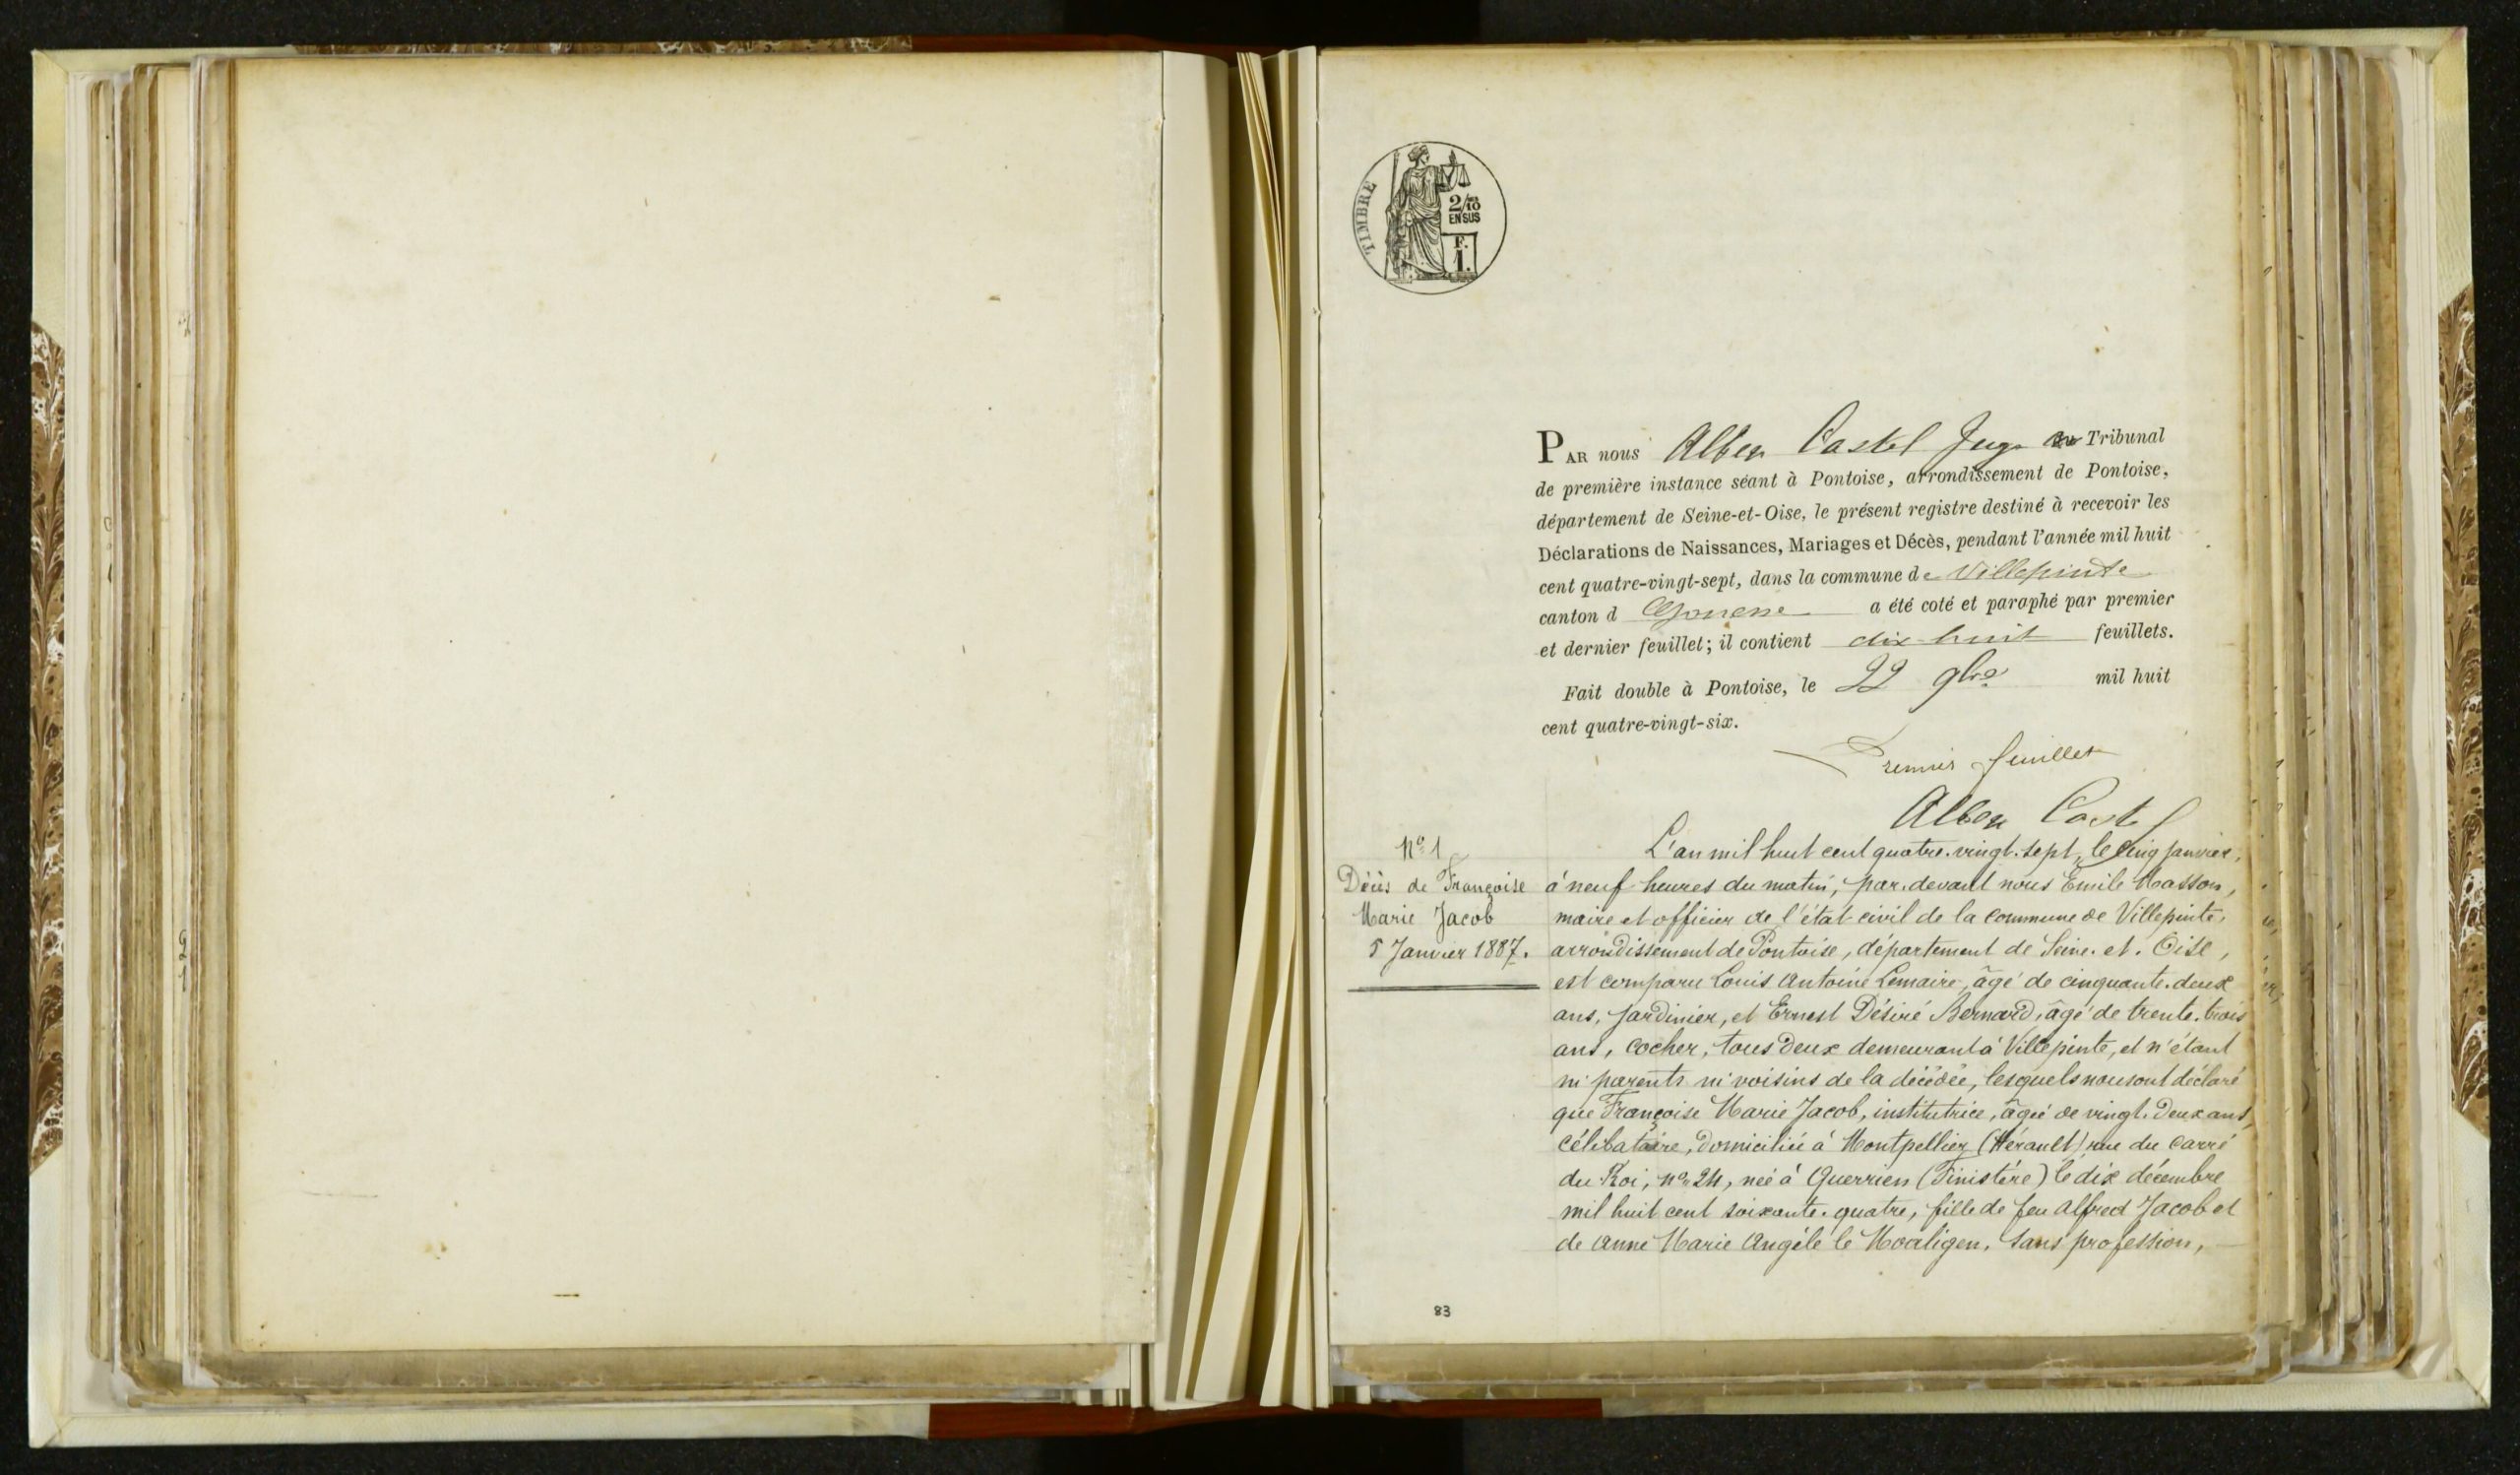 TIMBRE
2/10
EN SUS
F.
1.
PAR nous Alben Castel Juge au Tribunal
de première instance séant à Pontoise, arrondissement de Pontoise,
département de Seine-et-Oise, le présent registre destiné à recevoir les
Déclarations de Naissances, Mariages et Décès, pendant l'année mil huit
cent quatre-vingt-sept, dans la commune de Villepinte
canton d Gonesse a été coté et paraphé par premier
et dernier feuillet; il contient dix huit feuillets.
Fait double à Pontoise, le 22 9bre mil huit
cent quatre-vingt-six.
Premier feuillet
Alben Castel
N° 1
Décès de Françoise
Marie Jacob
5 Janvier 1887.
L'an mil huit cent quatre-vingt-sept, le cinq janvier,
à neuf heures du matin, par-devant nous Emile Masson,
maire et officier de l'état civil de la commune de Villepinte,
arrondissement de Pontoise, département de Seine-et-Oise,
est comparu Louis Antoine Lemaire, âgé de cinquante-deux
ans, jardinier, et Ernest Désiré Bernard, âgé de trente-trois
ans, cocher, tous deux demeurant à Villepinte, et n'étant
ni parents ni voisins de la décédée, lesquels nous ont déclaré
que Françoise Marie Jacob, institutrice, âgée de vingt-deux ans,
célibataire, domiciliée à Montpellier (Hérault) rue du Carré
du Roi, n° 24, née à Querrien (Finistère) le dix décembre
mil huit cent soixante-quatre, fille de feu Alfred Jacob et
de Anne Marie Angèle le Moaligen, sans profession,
83